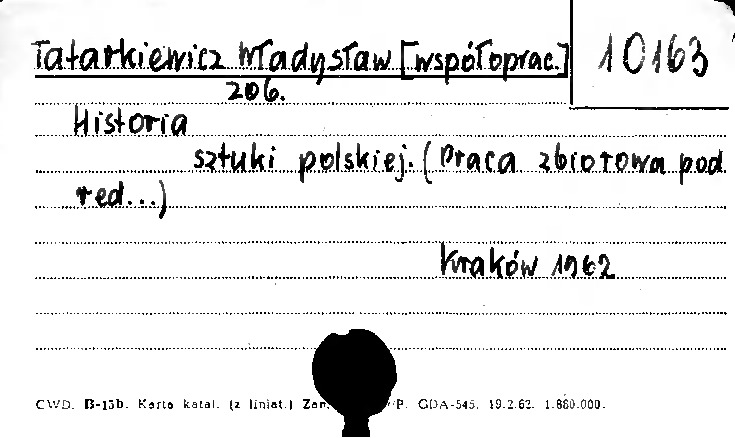 Tatarkiewicz Władysław [współoprac.]
10163
206.
Historia
sztuki polskiej. (Praca zbiorowa pod
red...)
Kraków 1962
CWD. B-15b. Karta katal. (z liniat.) Zam. P. GDA-545. 19.2.62. 1.880.000.